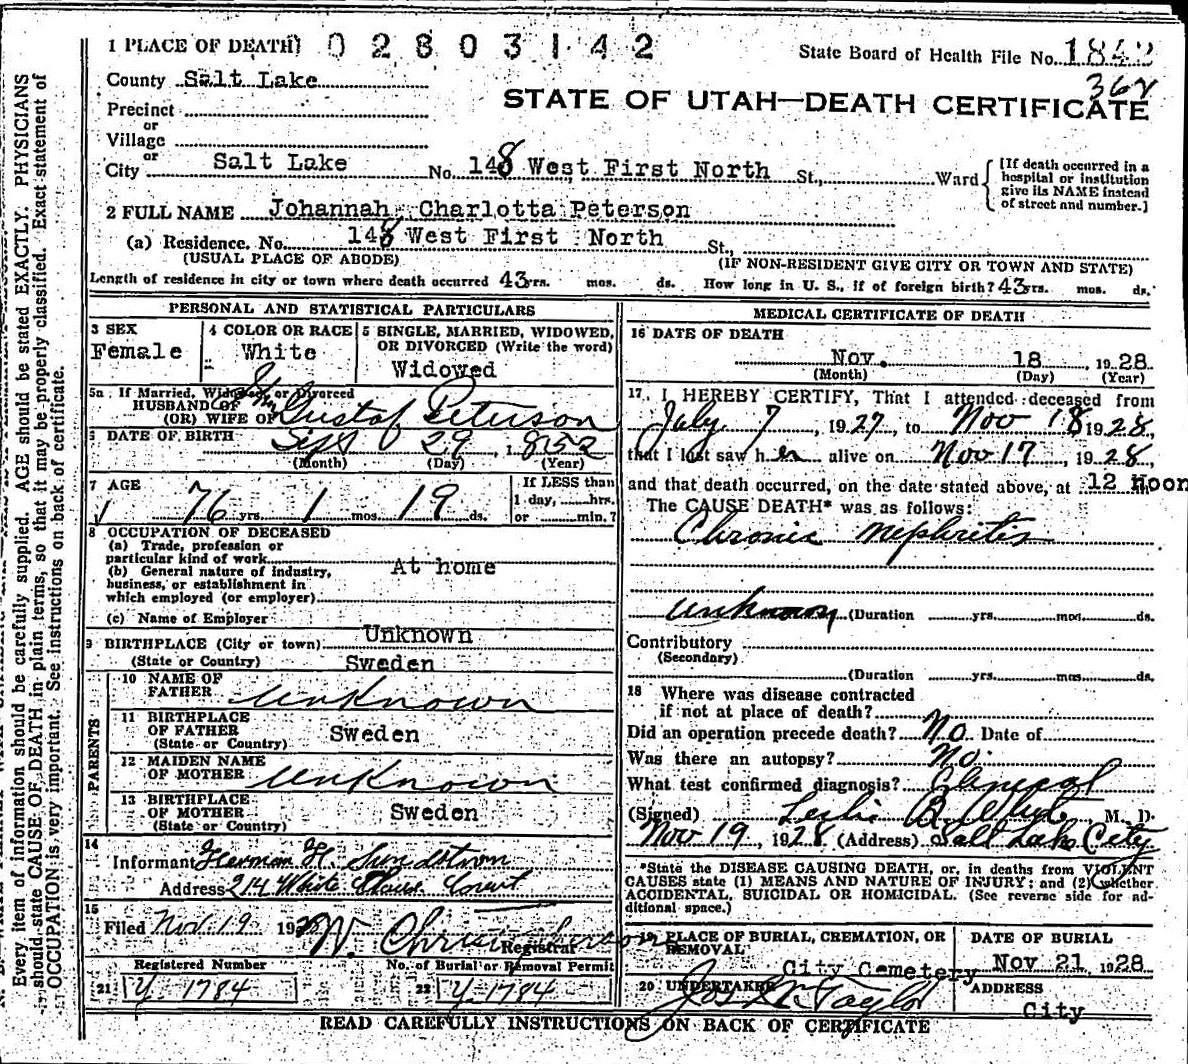 1 PLACE OF DEATH) 02803142 State Board of Health File No. 1842
368
County Salt Lake
STATE OF UTAH—DEATH CERTIFICATE
Precinct
or
Village
or
City Salt Lake No. 148 West First North St., Ward
[If death occurred in a
hospital or institution
give its NAME instead
of street and number.]
2 FULL NAME Johannah Charlotta Peterson
(a) Residence. No. 148 West First North St.,
(USUAL PLACE OF ABODE) (IF NON-RESIDENT GIVE CITY OR TOWN AND STATE)
Length of residence in city or town where death occurred 43 yrs. mos. ds. How long in U. S., if of foreign birth? 43 yrs. mos. ds.
PERSONAL AND STATISTICAL PARTICULARS
3 SEX
Female
4 COLOR OR RACE
White
5 SINGLE, MARRIED, WIDOWED,
OR DIVORCED (Write the word)
Widowed
5a If Married, Widowed, or Divorced
HUSBAND OF
(OR) WIFE OF John Gustof Peterson
6 DATE OF BIRTH Sept 29, 1852
(Month) (Day) (Year)
7 AGE
76 yrs. 1 mos. 19 ds.
If LESS than
1 day, hrs.
or min.?
8 OCCUPATION OF DECEASED
(a) Trade, profession or
particular kind of work At home
(b) General nature of industry,
business, or establishment in
which employed (or employer)
(c) Name of Employer
9 BIRTHPLACE (City or town) Unknown
(State or Country) Sweden
PARENTS
10 NAME OF
FATHER Unknown
11 BIRTHPLACE
OF FATHER Sweden
(State or Country)
12 MAIDEN NAME
OF MOTHER Unknown
13 BIRTHPLACE
OF MOTHER Sweden
(State or Country)
14
Informant Herman H. Sundstrom
Address 214 White Court
15
Filed Nov. 19 192 Registrar
Registered Number
21 Y 1784
No. of Burial or Removal Permit
22 Y 1784
MEDICAL CERTIFICATE OF DEATH
16 DATE OF DEATH
Nov. 18, 1928
(Month) (Day) (Year)
17 I HEREBY CERTIFY, That I attended deceased from
July 7, 1927, to Nov 18 1928,
that I last saw her alive on Nov 17, 1928,
and that death occurred, on the date stated above, at 12 noon
The CAUSE DEATH* was as follows:
Chronic Nephritis
unknown (Duration yrs. mos. ds.
Contributory
(Secondary)
(Duration yrs. mos. ds.
18 Where was disease contracted
if not at place of death?
Did an operation precede death? No Date of
Was there an autopsy? No.
What test confirmed diagnosis? Clinical
(Signed) Leslie B. White M. D.
Nov 19, 1928 (Address) Salt Lake City
*State the DISEASE CAUSING DEATH, or, in deaths from VIOLENT
CAUSES state (1) MEANS AND NATURE OF INJURY; and (2) whether
ACCIDENTAL, SUICIDAL OR HOMICIDAL. (See reverse side for ad-
ditional space.)
19 PLACE OF BURIAL, CREMATION, OR
REMOVAL
City Cemetery
DATE OF BURIAL
Nov 21, 1928
20 UNDERTAKER
Jos. Taylor
ADDRESS
City
READ CAREFULLY INSTRUCTIONS ON BACK OF CERTIFICATE
Every item of information should be carefully supplied. AGE should be stated EXACTLY. PHYSICIANS
should state CAUSE OF DEATH in plain terms, so that it may be properly classified. Exact statement of
OCCUPATION is very important. See instructions on back of certificate.